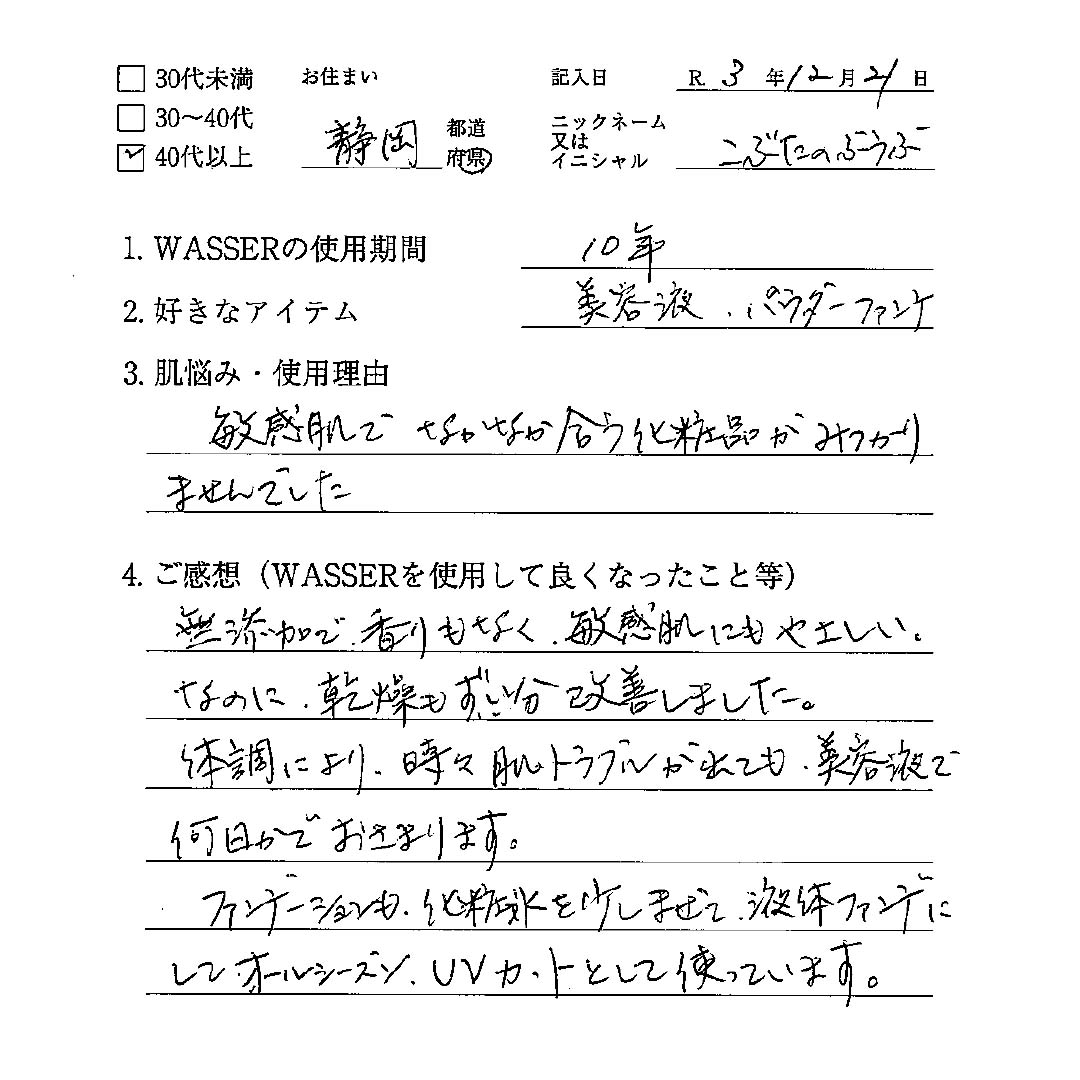 30代未満 お住まい 記入日 R. 3 年 12 月 21 日
30〜40代 静岡 都道 ニックネーム
40代以上 府県 又は
イニシャル こぶたのぶうぶ
1. WASSERの使用期間 10年
2. 好きなアイテム 美容液、パウダーファンケ
3. 肌悩み・使用理由
敏感肌で なかなか合う化粧品がみつかり
ませんでした
4. ご感想（WASSERを使用して良くなったこと等）
無添加で、香りもなく、敏感肌にもやさしい。
なのに、乾燥もずい分改善しました。
体調により、時々肌トラブルが出ても、美容液で
何日かでおさまります。
ファンデーションも、化粧水を少しまぜて、液体ファンデに
してオールシーズン、UVカットとして使っています。